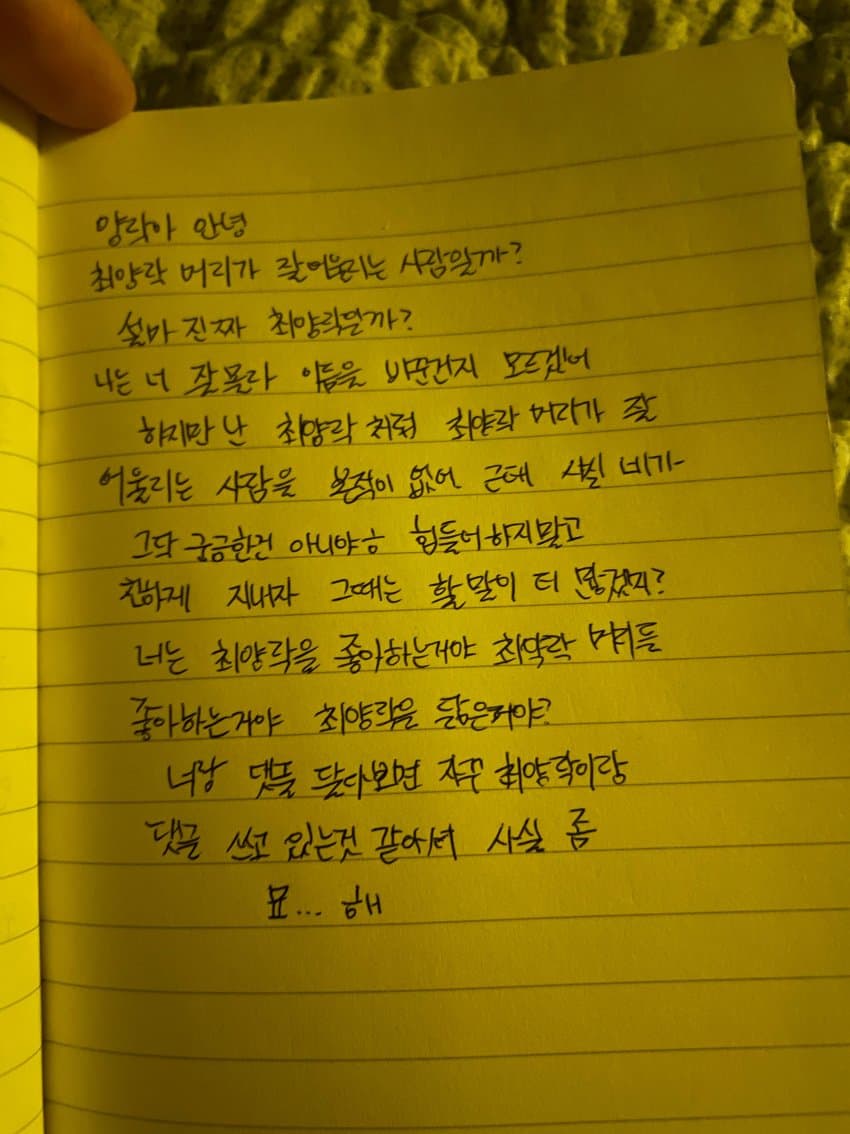 양락아 안녕
최양락 머리가 잘어울리는 사람일까?
설마 진짜 최양락일까?
나는 너 잘몰라 이름을 바꾼건지 모르겠어
하지만 난 최양락 처럼 최양락 머리가 잘
어울리는 사람을 본적이 없어 근데 사실 네가
그닥 궁금한건 아니야ㅎ 힘들어하지말고
친하게 지내자 그때는 할말이 더 많겠지?
너는 최양락을 좋아하는거야 최악락 머리를
좋아하는거야 최양락을 닮은거야?
너랑 댓글 달다보면 자꾸 최양락이랑
댓글 쓰고 있는것 같아서 사실 좀
묘... 해